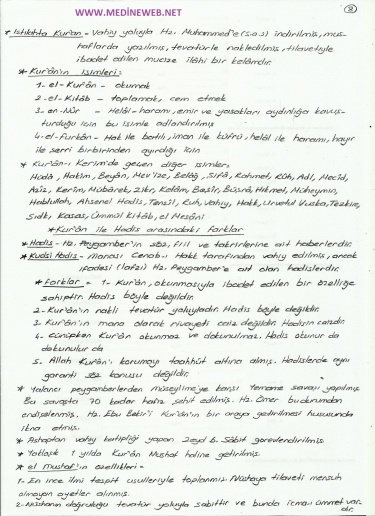 www.MEDİNEWEB.NET
2
* Istılahta Kur'an - Vahiy yoluyla Hz. Muhammed'e (s.a.s) indirilmiş, mus-
haflarda yazılmış, tevatürle nakledilmiş, tilavetiyle
ibadet edilen mucize ilâhi bir kelâmdır.
* Kur'ân'ın isimleri:
1- el-Kur'ân - okumak
2- el-Kitâb - toplamak, cem etmek
3- en-Nûr - Helâl-haramı, emir ve yasakları aydınlığa kavuş-
turduğu için bu isimle adlandırılmış
4- el-Furkân - Hak ile batılı, iman ile küfrü, helâl ile haramı, hayır
ile şerri birbirinden ayırdığı için
* Kur'ân-ı Kerim'de geçen diğer isimler:
Hüdâ, Hakim, Beyân, Mev'ize, Belâğ, Şifâ, Rahmet, Rûh, Adl, Mecîd,
Azîz, Kerim, Mübârek, Zikr, Kelâm, Basîr, Büşrâ, Hikmet, Müheymin,
Hablullah, Ahsenel Hadis, Tenzil, Ruh, Vahiy, Hakk, Urvetul Vuska, Tezkire,
Sıdk, Kasas, Ümmül Kitâb, el Mesâni
* Kur'ân ile Hadis arasındaki farklar
* Hadis - Hz. Peygamber'in söz, fiil ve takrirlerine ait haberlerdir.
* Kudsi Hadis - Manası Cenab-ı Hakk tarafından vahiy edilmiş, ancak
ifadesi (lafzi) Hz. Peygamber'e ait olan hadislerdir.
* Farklar = 1- Kur'ân, okunmasıyla ibadet edilen bir özelliğe
sahiptir. Hadis böyle değildir.
2- Kur'ân'ın nakli tevatür yoluyladır. Hadis böyle değildir.
3- Kur'ân'ın mana olarak rivayeti caiz değildir. Hadisin caizdir.
4- Cünüpken Kur'ân okunmaz ve dokunulmaz. Hadis okunur da
dokunulur da
5. Allah Kur'ân'ı korumayı taahhüt altına almış. Hadislerde aynı
garanti söz konusu değildir.
* Yalancı peygamberlerden Müseylime'ye karşı Yemame savaşı yapılmış.
Bu savaşta 70 kadar hafız şehit edilmiş. Hz. Ömer bu durumdan
endişelenmiş, Hz. Ebu Bekir'i Kur'ân'ın bir araya getirilmesi hususunda
ikna etmiş.
* Ashaptan vahiy katipliği yapan Zeyd b. Sâbit görevlendirilmiş.
* Yaklaşık 1 yılda Kur'ân Mushaf haline getirilmiş.
* el mushaf'ın özellikleri -
1- En ince ilmi tespit usulleriyle toplanmış. Nüshaya tilaveti mensuh
olmayan ayetler alınmış.
2- Nüshanın doğruluğu tevatür yoluyla sabittir ve bunda icma-ı ümmet var-
dır.